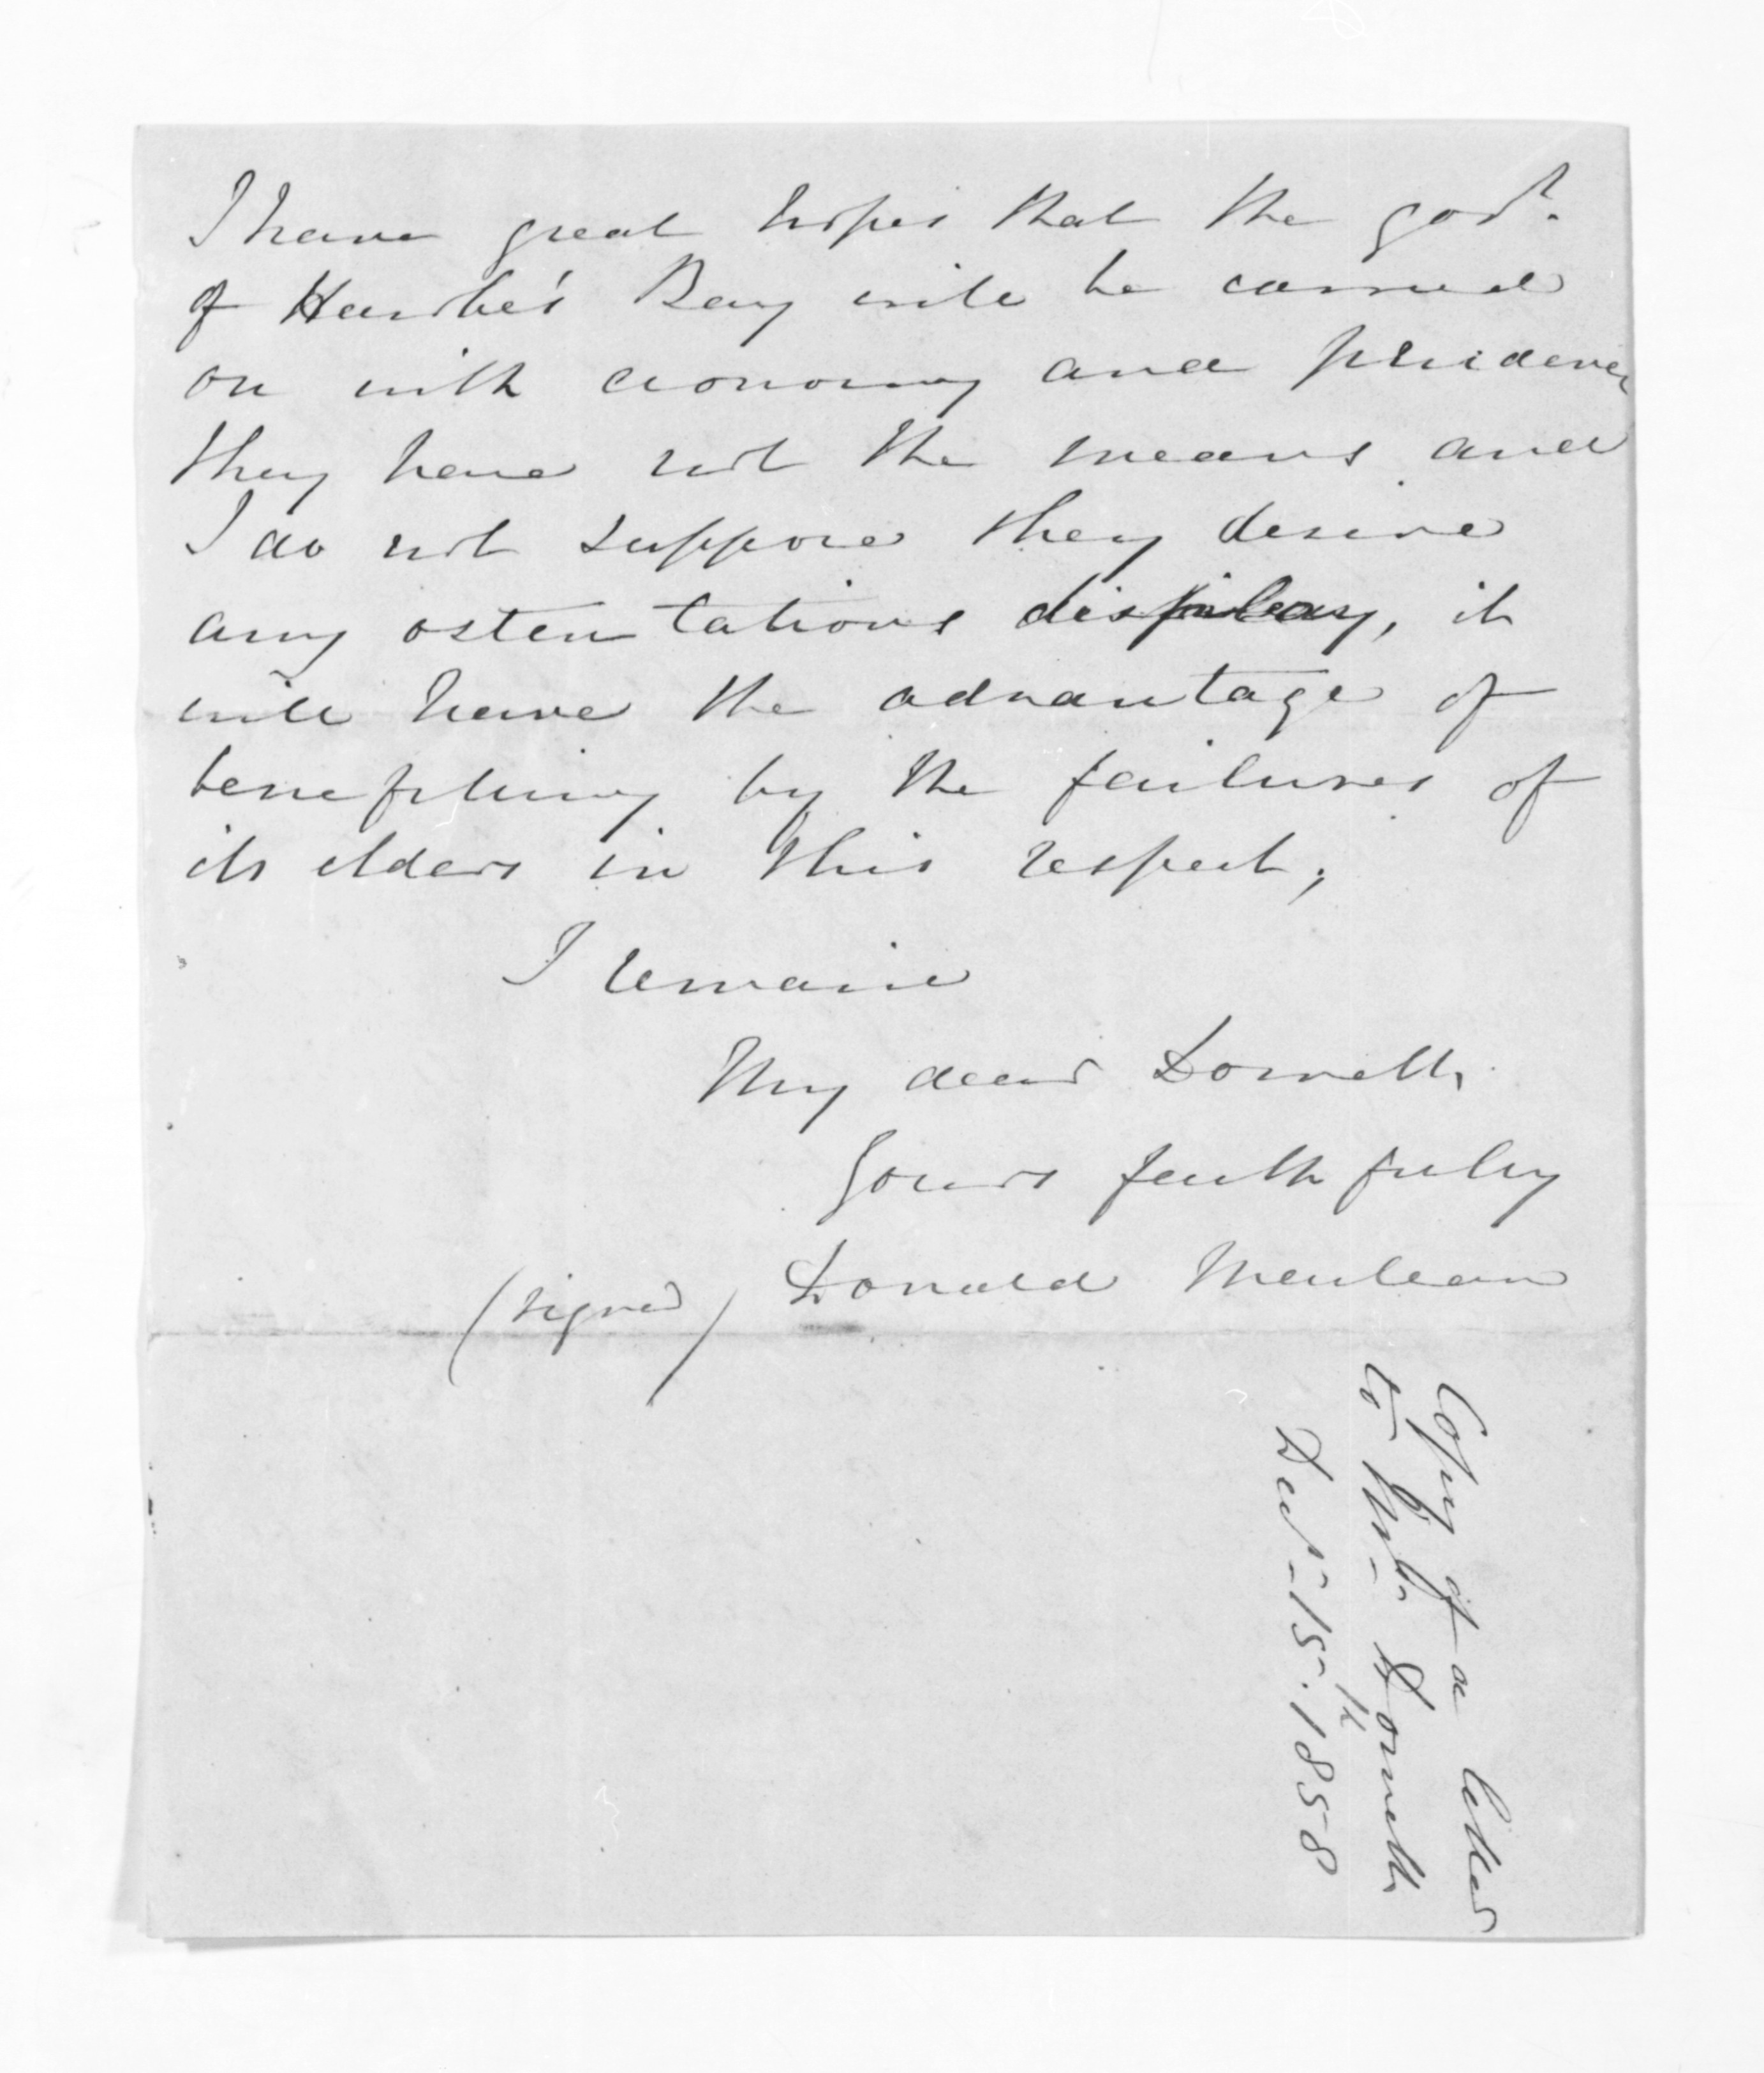 I have great hopes that the govt.
of Hawke's Bay will be carried
on with economy and prudence
they have not the means and
I do not suppose they desire
any ostentatious display, it
will have the advantage of
benefitting by the failures of
its elders in this respect;
I remain
My dear Domett,
Yours faithfully
(signed) Donald McLean
Copy of a letter
to Mr. Domett
Decr. 15th. 1858